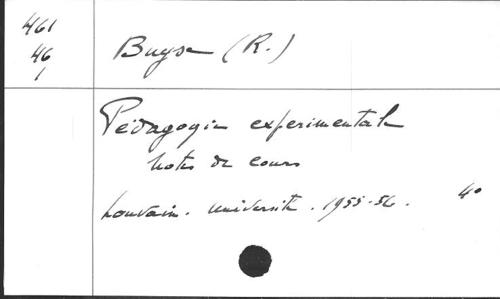 461
46
1
Buyse (R.)
Pédagogie expérimentale
Notes de cours
Louvain. Université. 1955-56. 4°